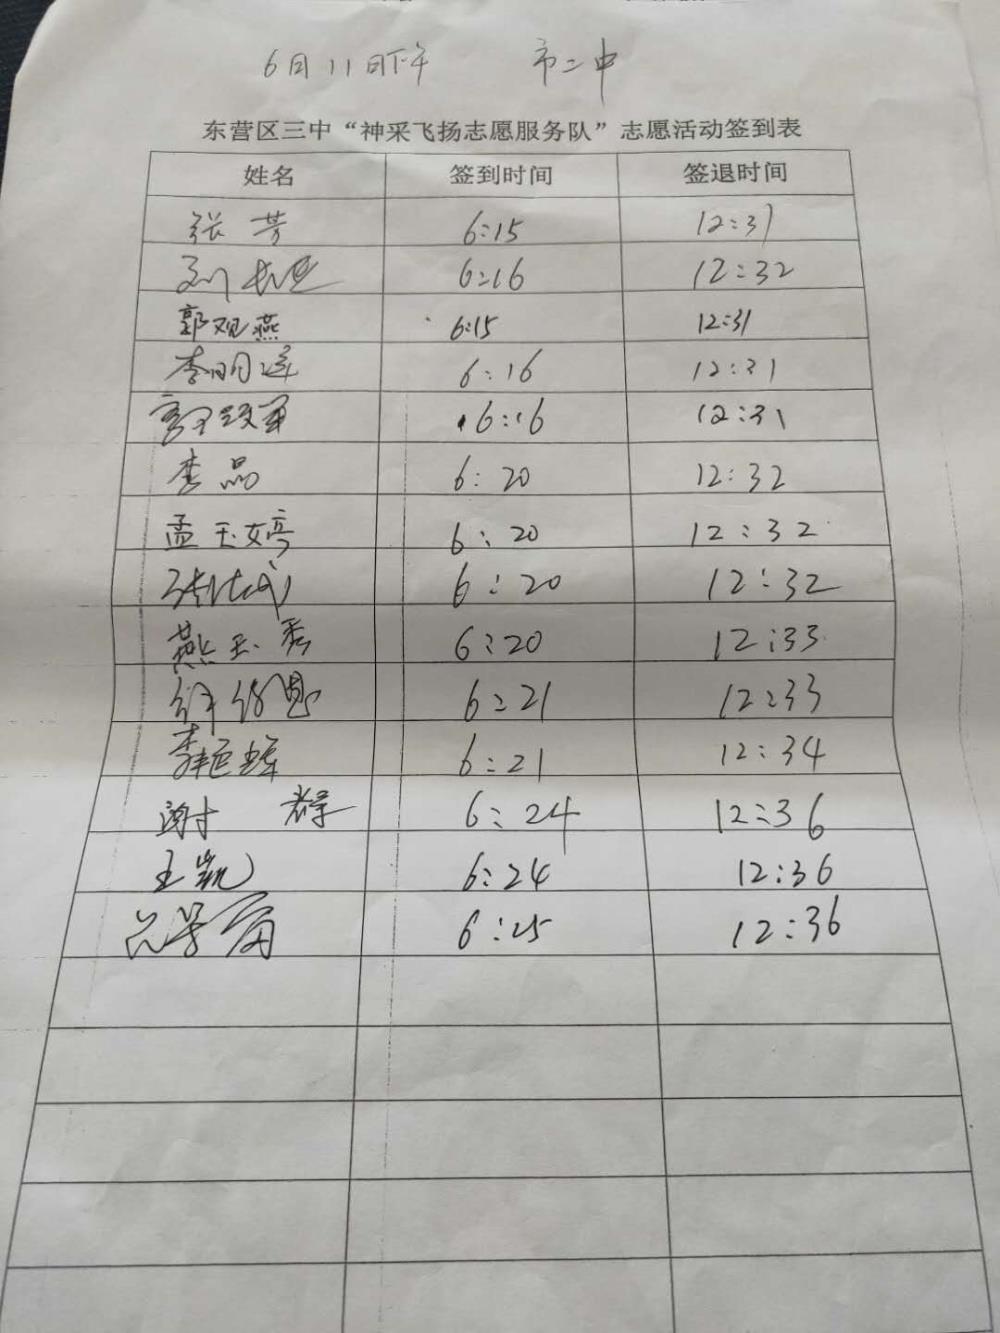 6月11日下午 市二中
东营区三中“神采飞扬志愿服务队”志愿活动签到表
姓名 签到时间 签退时间
张芳 6:15 12:31
刘 6:16 12:32
郭观燕 6:15 12:31
李明莲 6:16 12:31
6:16 12:31
李品 6:20 12:32
孟玉婷 6:20 12:32
6:20 12:32
燕玉秀 6:20 12:33
6:21 12:33
李 6:21 12:34
谢群 6:24 12:36
王凯 6:24 12:36
6:25 12:36